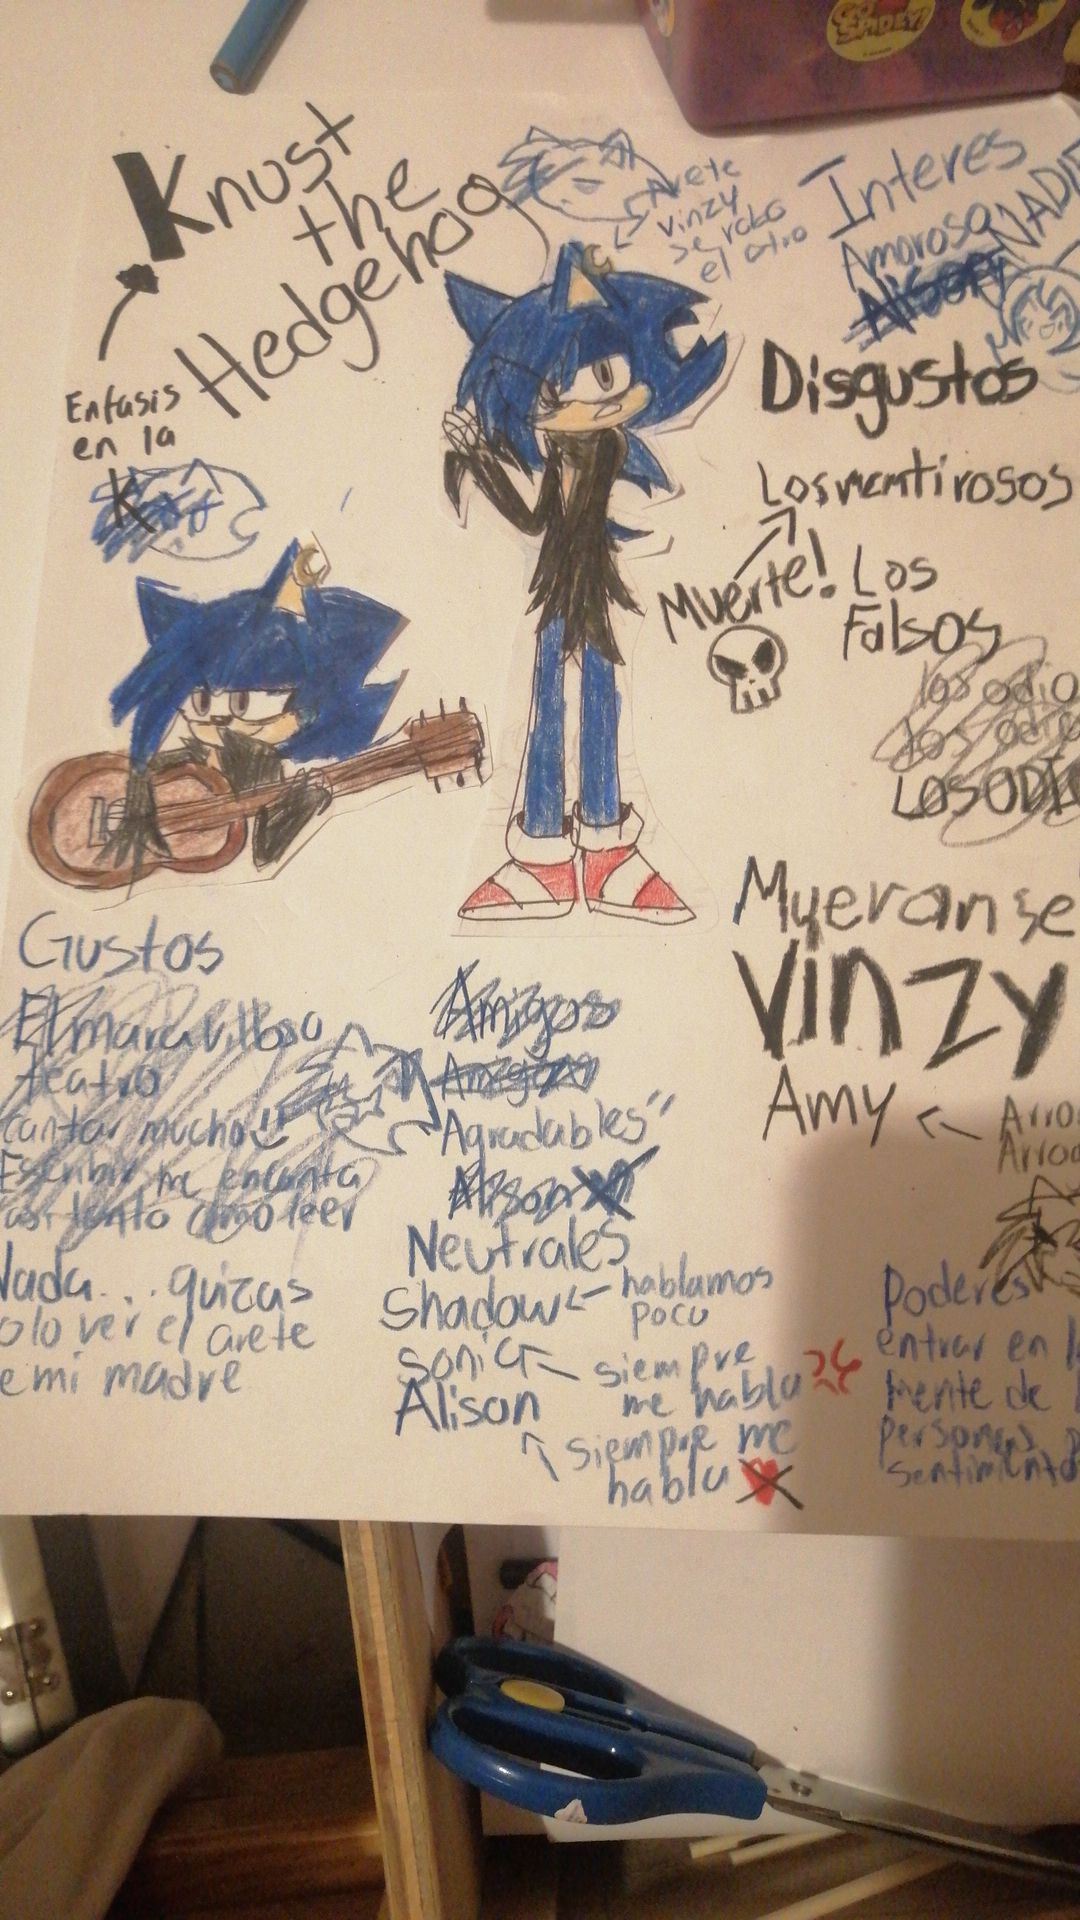 GO
SPIDEY!
Knust
the
Hedgehog
Enfasis
en la
K
Arete
vinzy
se robo
el otro
Interes
Amoroso
NADIE
Disgustos
Los mentirosos
Muerte!
Los
Falsos
los odio
los odio
LOS ODI
Mueranse
Vinzy
Amy
Gustos
El maravilloso
teatro
cantar mucho
Escribir me encanta
tanto como leer
Nada... quizas
olo ver el arete
e mi madre
Amigos
Amigos
Agradables"
Alison
Neutrales
Shadow
hablamos
poco
sonic
siempre
me habla
Alison
siempre me
habla
Poderes
entrar en l
mente de l
personas
sentimiento